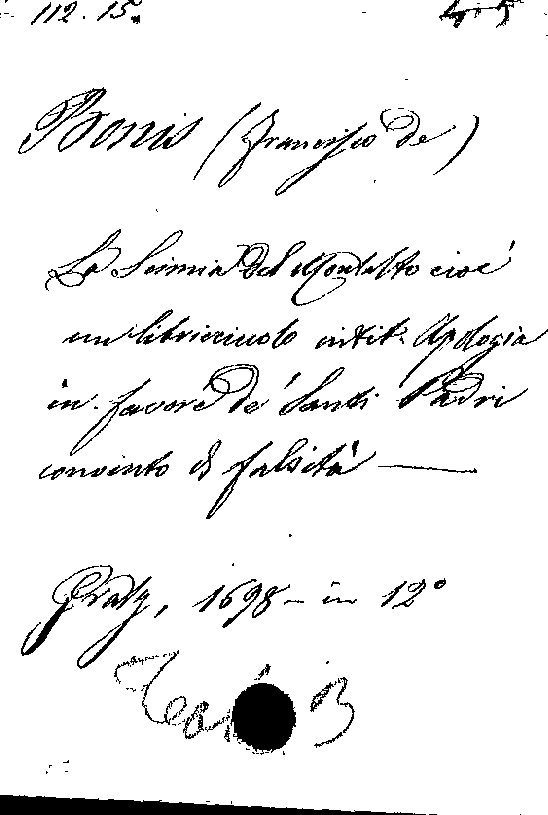 112. 15.
Bonis (Francesco de)
La Scimia del Montalto cioè
un libricciuolo intit. Apologia
in favore de' Santi Padri
convinto di falsità —
Gratz, 1698 - in 12°
B